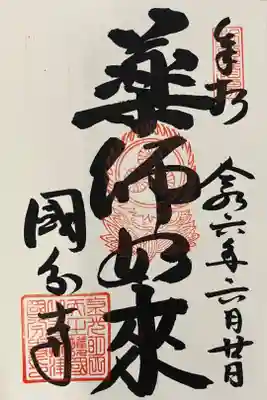 奉拝
令和六年六月廿日
薬師如來
國分寺